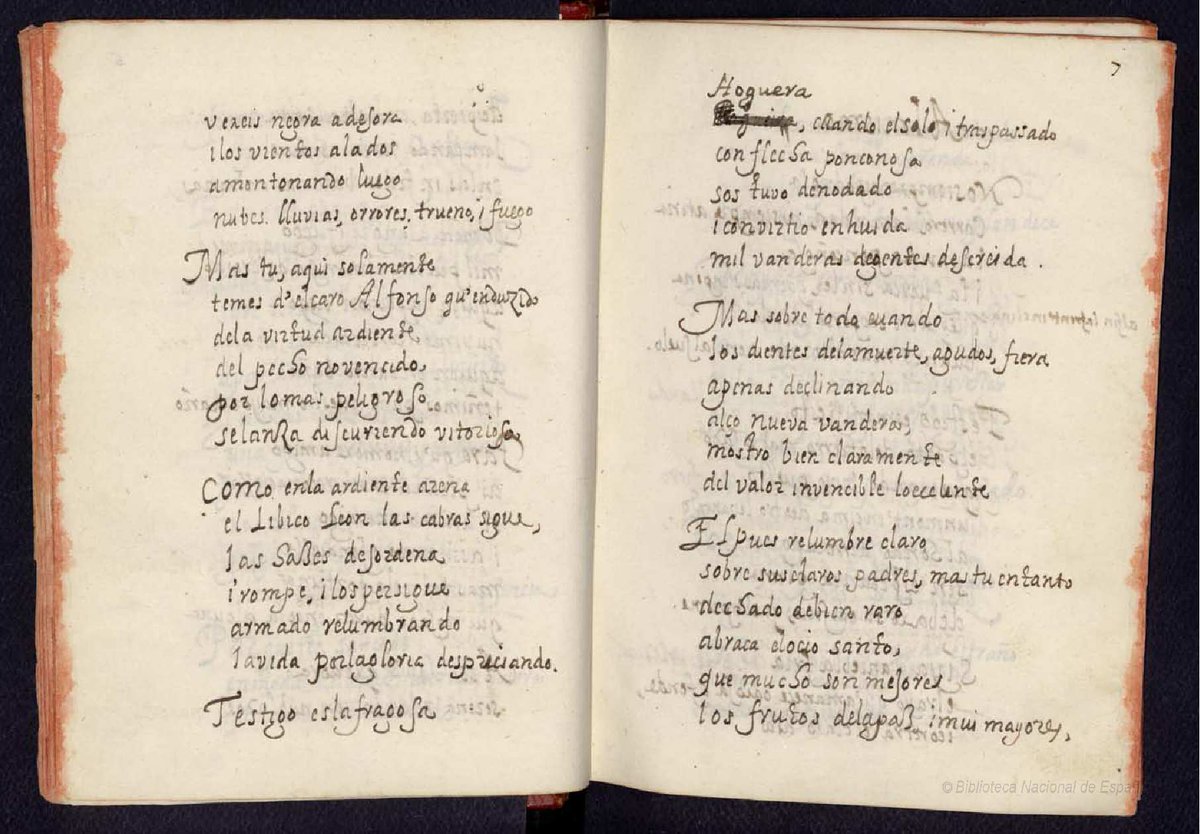 vereis negra adesora
i los vientos alados
amontonando luego
nubes. lluvias, orrores, trueno, i fuego
Mas tu, aqui solamente
temes d'el caro Alfonso qu'enduzido
dela virtud ardiente
del pecho no vencido,
por lo mas peligroso
se lanza discuriendo vitorioso,
Como enla ardiente arena
el Libico Leon las cabras sigue,
las hazes desordena
i rompe, i los persigue
armado relumbrando
la vida por la gloria despreciando.
Testigo es la fragosa
7
Hoguera
, cuando el solo, i traspassado
con flecha ponçoñosa
sostuvo denodado
i convirtio en huida
mil vanderas de gente descreida.
Mas sobre todo cuando
los dientes dela muerte, agudos, fiera
apenas declinando
alço nueva vandera,
mostro bien claramente
del valor invencible lo ecelente
El pues relumbre claro
sobre sus claros padres, mas tu entanto
dechado de bien raro
abraça el ocio santo,
que mucho son mejores
los frutos dela paz i mui mayores,
© Biblioteca Nacional de España